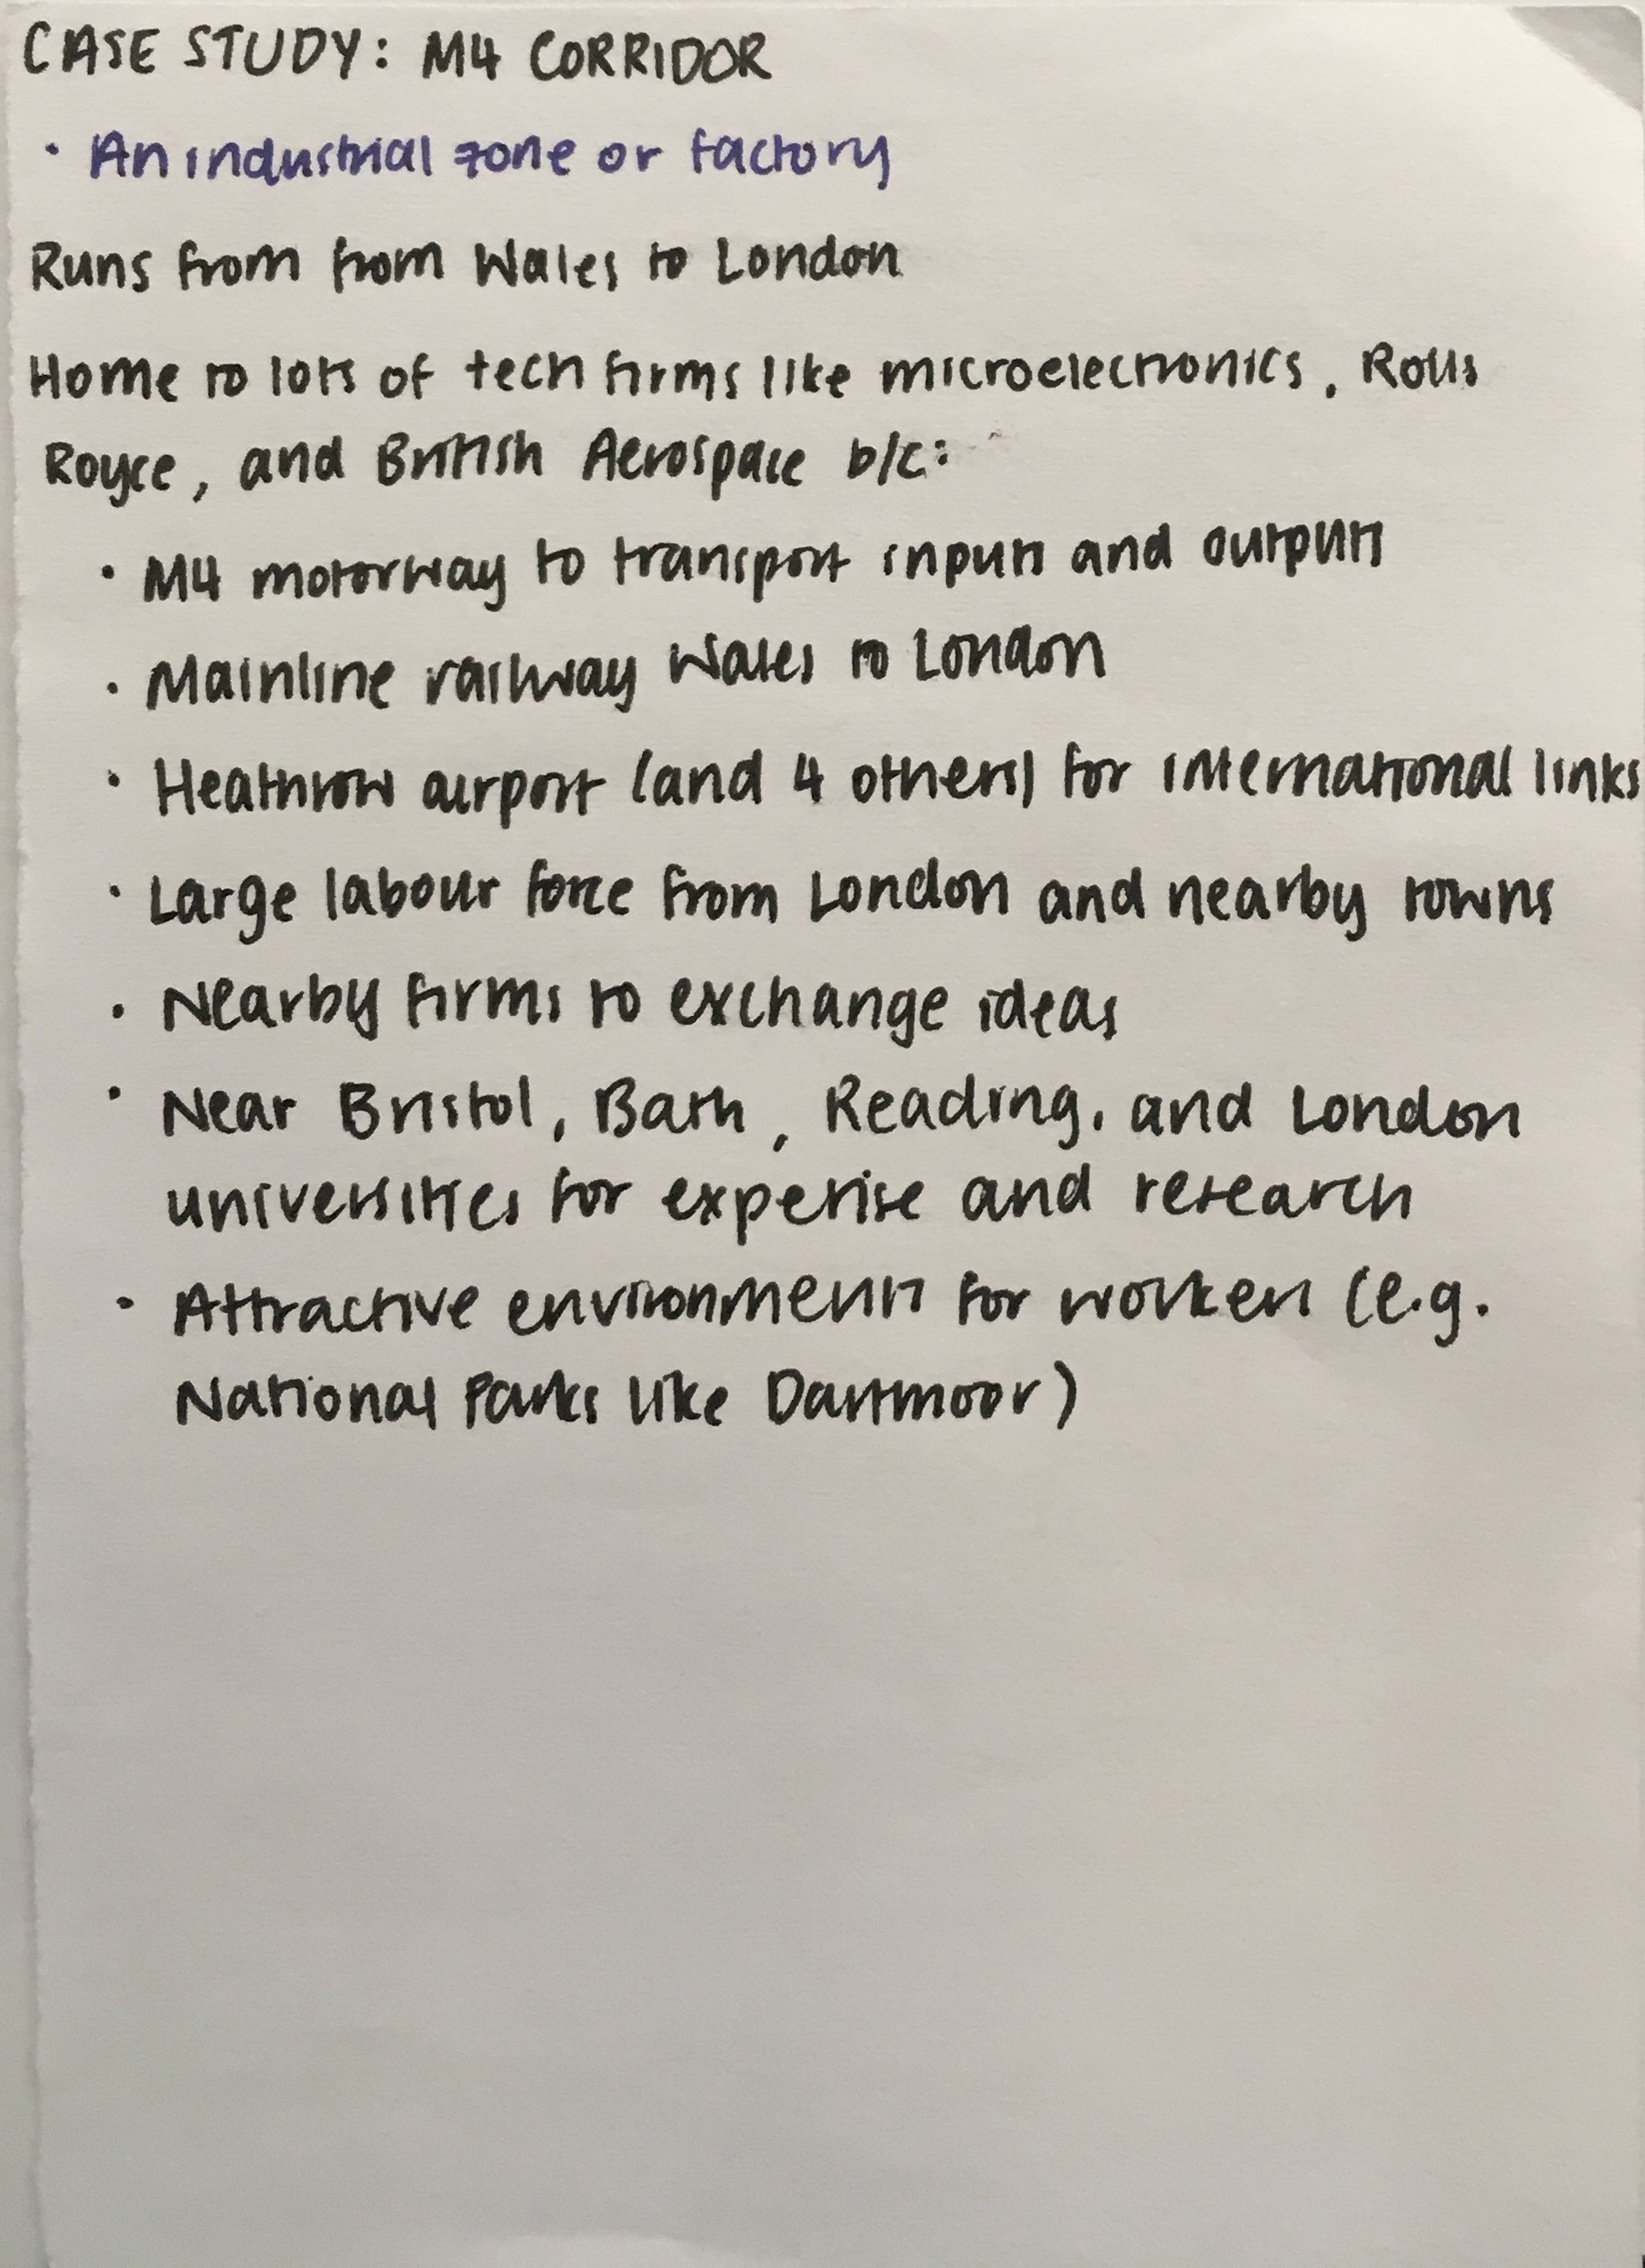 CASE STUDY: M4 CORRIDOR
· An industrial zone or factory
Runs from from Wales to London
Home to lots of tech firms like microelectronics, Rolls
Royce, and British Aerospace b/c:
· M4 motorway to transport inputs and outputs
· Mainline railway Wales to London
· Heathrow airport (and 4 others) for international links
· Large labour force from London and nearby towns
· Nearby firms to exchange ideas
· Near Bristol, Bath, Reading, and London
universities for expertise and research
· Attractive environments for workers (e.g.
National Parks like Dartmoor)